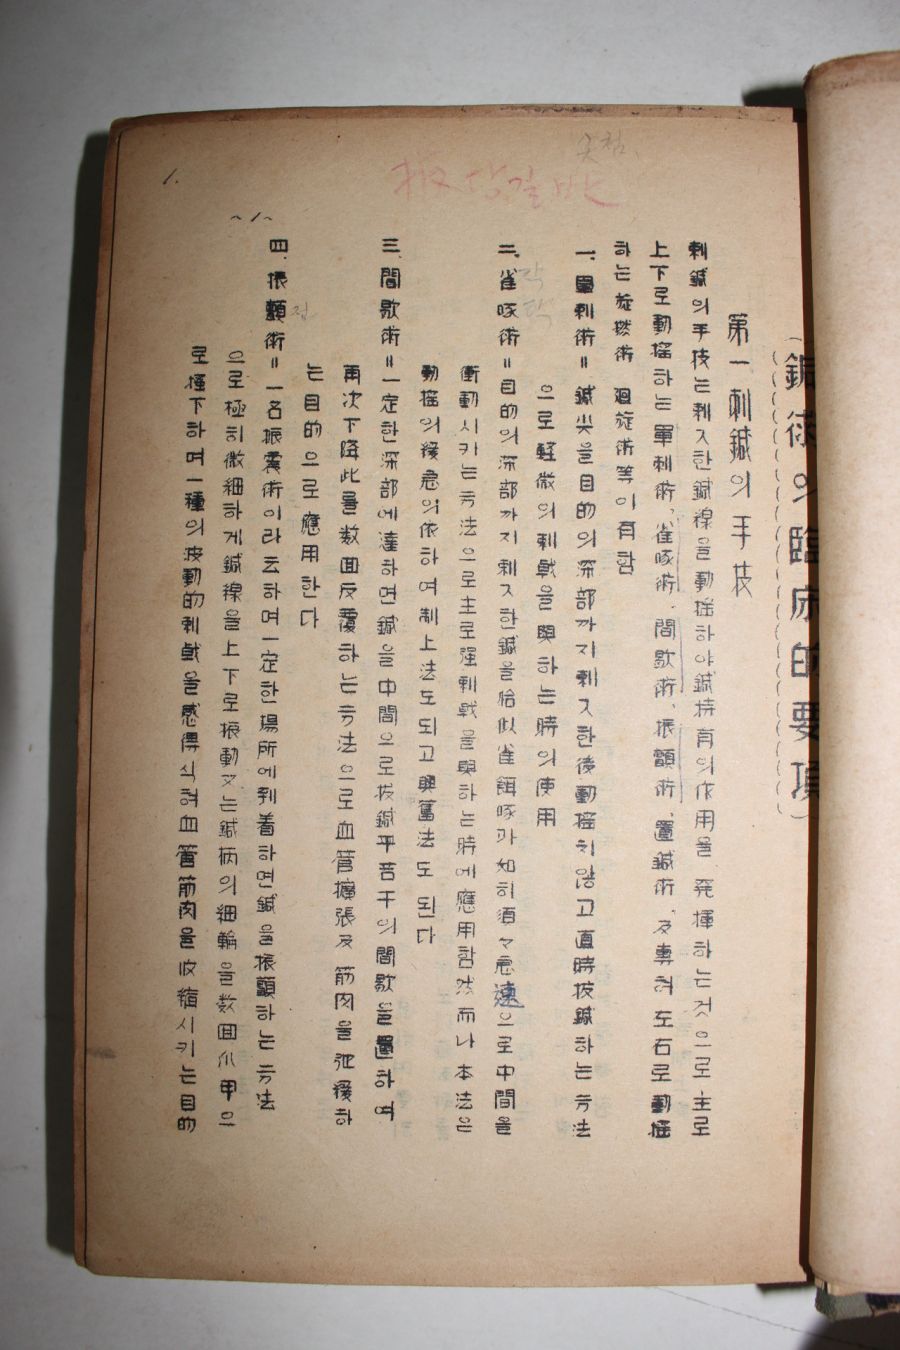 鍼術의臨床的要項
第一 刺鍼의手技
刺鍼의手技는刺入한鍼線을動搖하야鍼持有의作用을 発揮하는것으로主로
上下로動搖하는單刺術、雀啄術、間歇術、振顫術、置鍼術、及専혀左右로動搖
하는旋撚術 廻旋術等이有함
一、單刺術＝鍼尖을目的의深部까지刺入한後動搖치않고直時抜鍼하는方法
으로軽微의刺戟을與하는時의使用
二、雀啄術＝目的의深部까지刺入한鍼을恰似雀餌啄과如히須々急速으로中間을
衝動시키는方法으로主로强刺戟을與하는時에應用함然而나本法은
動搖의後急의依하여制止法도되고興奮法도 된다
三、間歇術＝一定한深部에達하면鍼을中間으로抜鍼平若干의間歇을置하여
再次下降此를数回反覆하는方法으로血管擴張及筋肉을弛緩하
는目的으로應用한다
四、振顫術＝一名振震術이라云하며一定한場所에到着하면鍼을振顫하는方法
으로極히微細하게鍼線을上下로振動又는鍼柄의細輪을数回爪甲으
로搔下하며一種의波動的刺戟을感得식혀血管筋肉을收縮시키는目的
～1～
1.